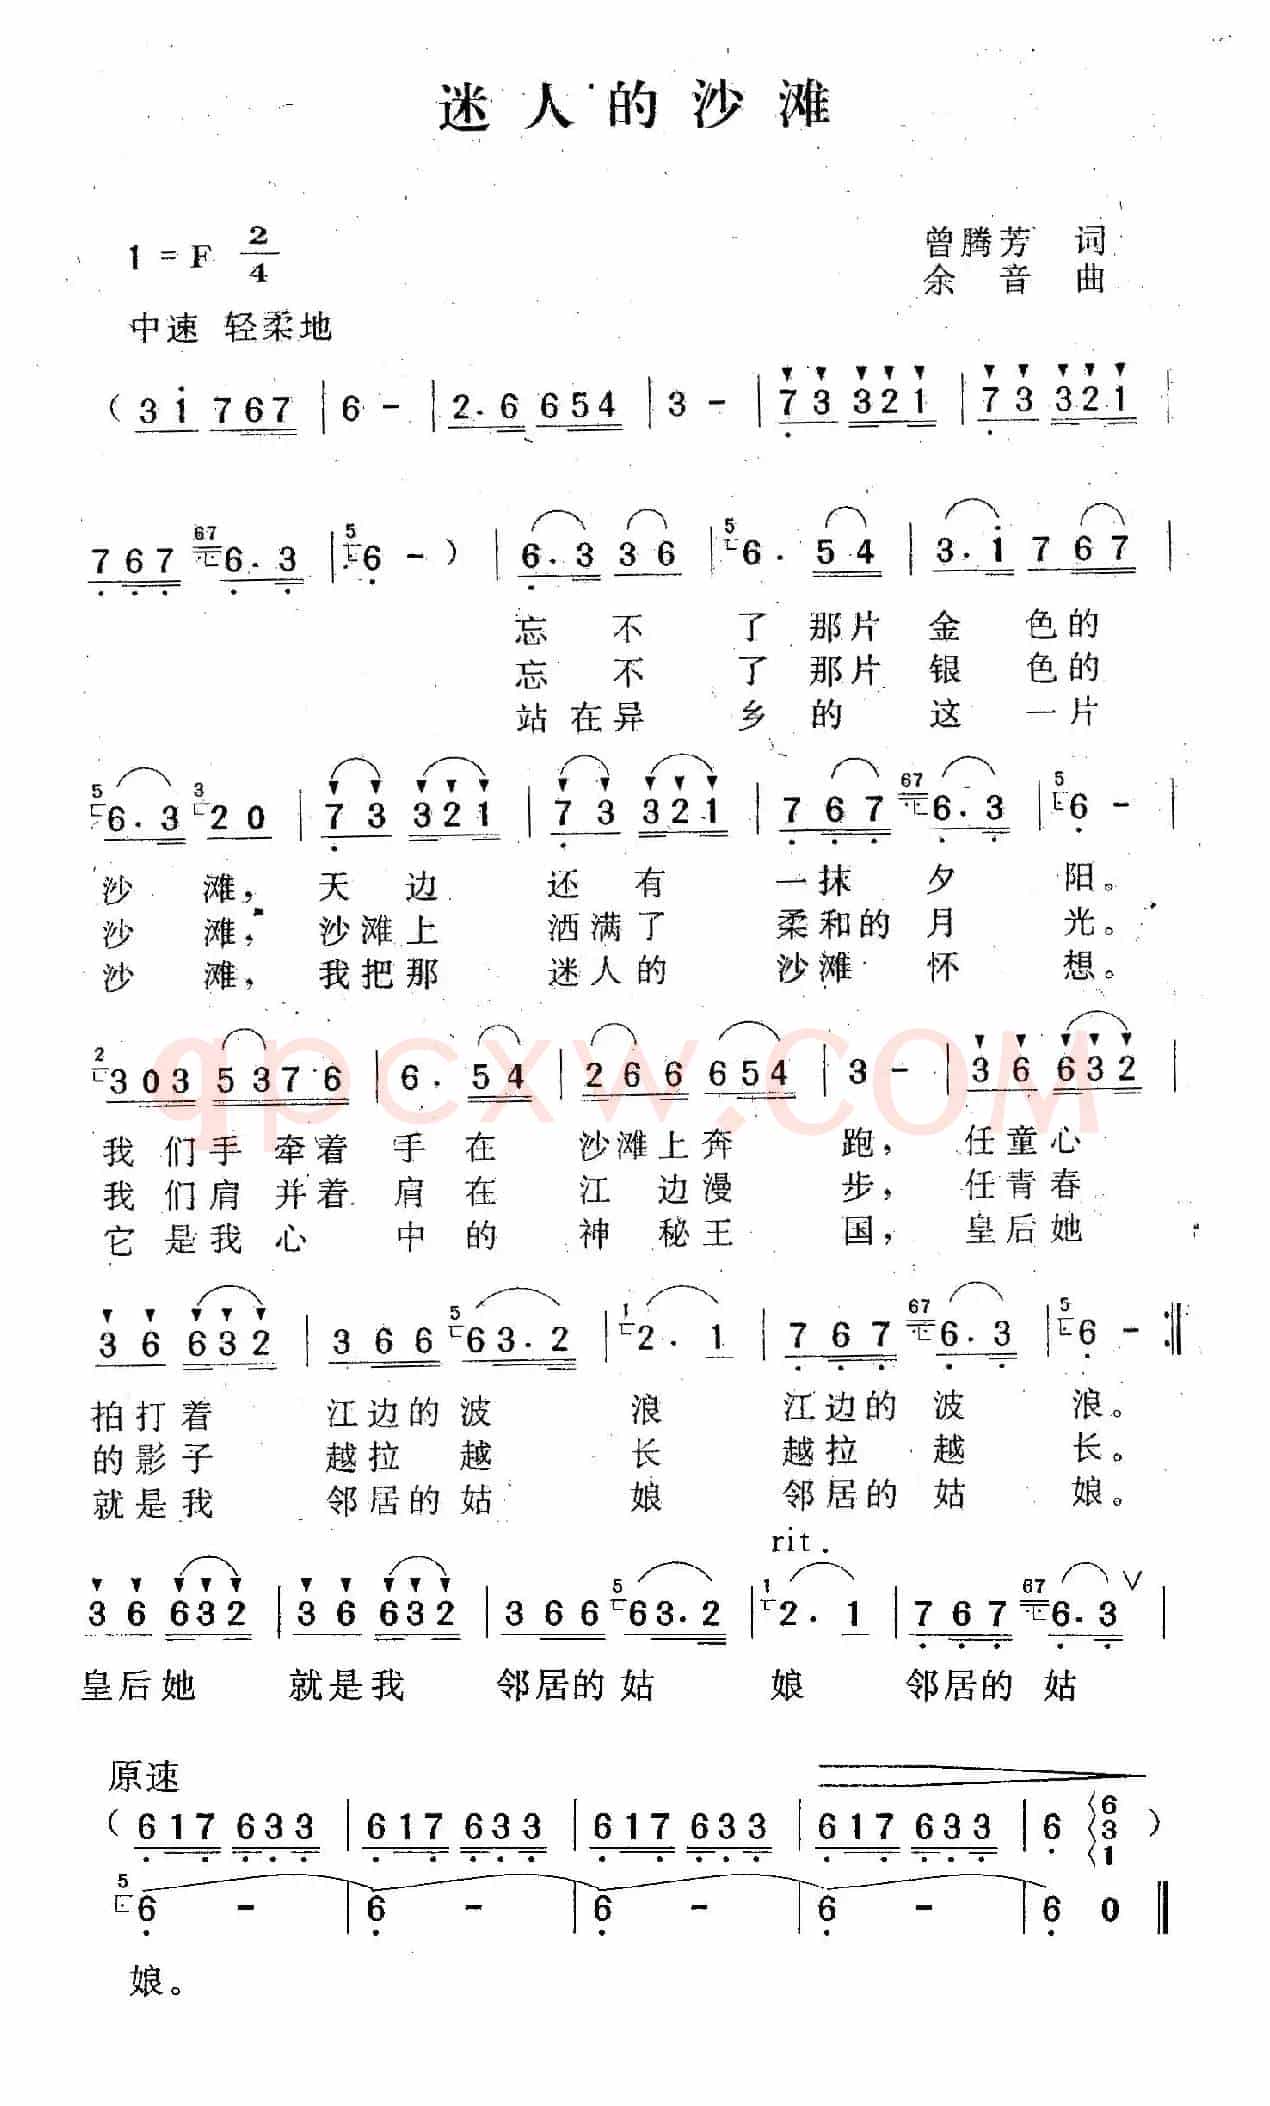 迷人的沙滩
1=F 2/4
曾腾芳 词
余音 曲
中速 轻柔地
( 3 1 7 6 7 | 6 - | 2. 6 6 5 4 | 3 - | 7 3 3 2 1 | 7 3 3 2 1 |
7 6 7 67 6. 3 | 5 6 - ) | 6. 3 3 6 | 5 6. 5 4 | 3. 1 7 6 7 |
忘 不 了 那片 金 色的
忘 不 了 那片 银 色的
站在异 乡 的 这 一片
5 6. 3 3 2 0 | 7 3 3 2 1 | 7 3 3 2 1 | 7 6 7 67 6. 3 | 5 6 - |
沙 滩, 天 边 还 有 一抹 夕 阳。
沙 滩, 沙滩上 洒满了 柔和的 月 光。
沙 滩, 我把那 迷人的 沙滩 怀 想。
qpcxw.COM
2 3 0 3 5 3 7 6 | 6. 5 4 | 2 6 6 6 5 4 | 3 - | 3 6 6 3 2 |
我 们手 牵着 手 在 沙滩上奔 跑, 任童心
我 们肩 并着 肩 在 江 边漫 步, 任青春
它 是我 心 中 的 神 秘王 国, 皇后她
3 6 6 3 2 | 3 6 6 5 6 3. 2 | 1 2. 1 | 7 6 7 67 6. 3 | 5 6 - :||
拍打着 江边的 波 浪 江边的 波 浪。
的影子 越拉 越 长 越拉 越 长。
就是我 邻居的姑 娘 邻居的 姑 娘。
rit.
3 6 6 3 2 | 3 6 6 3 2 | 3 6 6 5 6 3. 2 | 1 2. 1 | 7 6 7 67 6. 3 V |
皇后她 就是我 邻居的 姑 娘 邻居的 姑
原速
( 6 1 7 6 3 3 | 6 1 7 6 3 3 | 6 1 7 6 3 3 | 6 1 7 6 3 3 | 6 6 3 1 )
5 6 - | 6 - | 6 - | 6 - | 6 0 ||
娘。